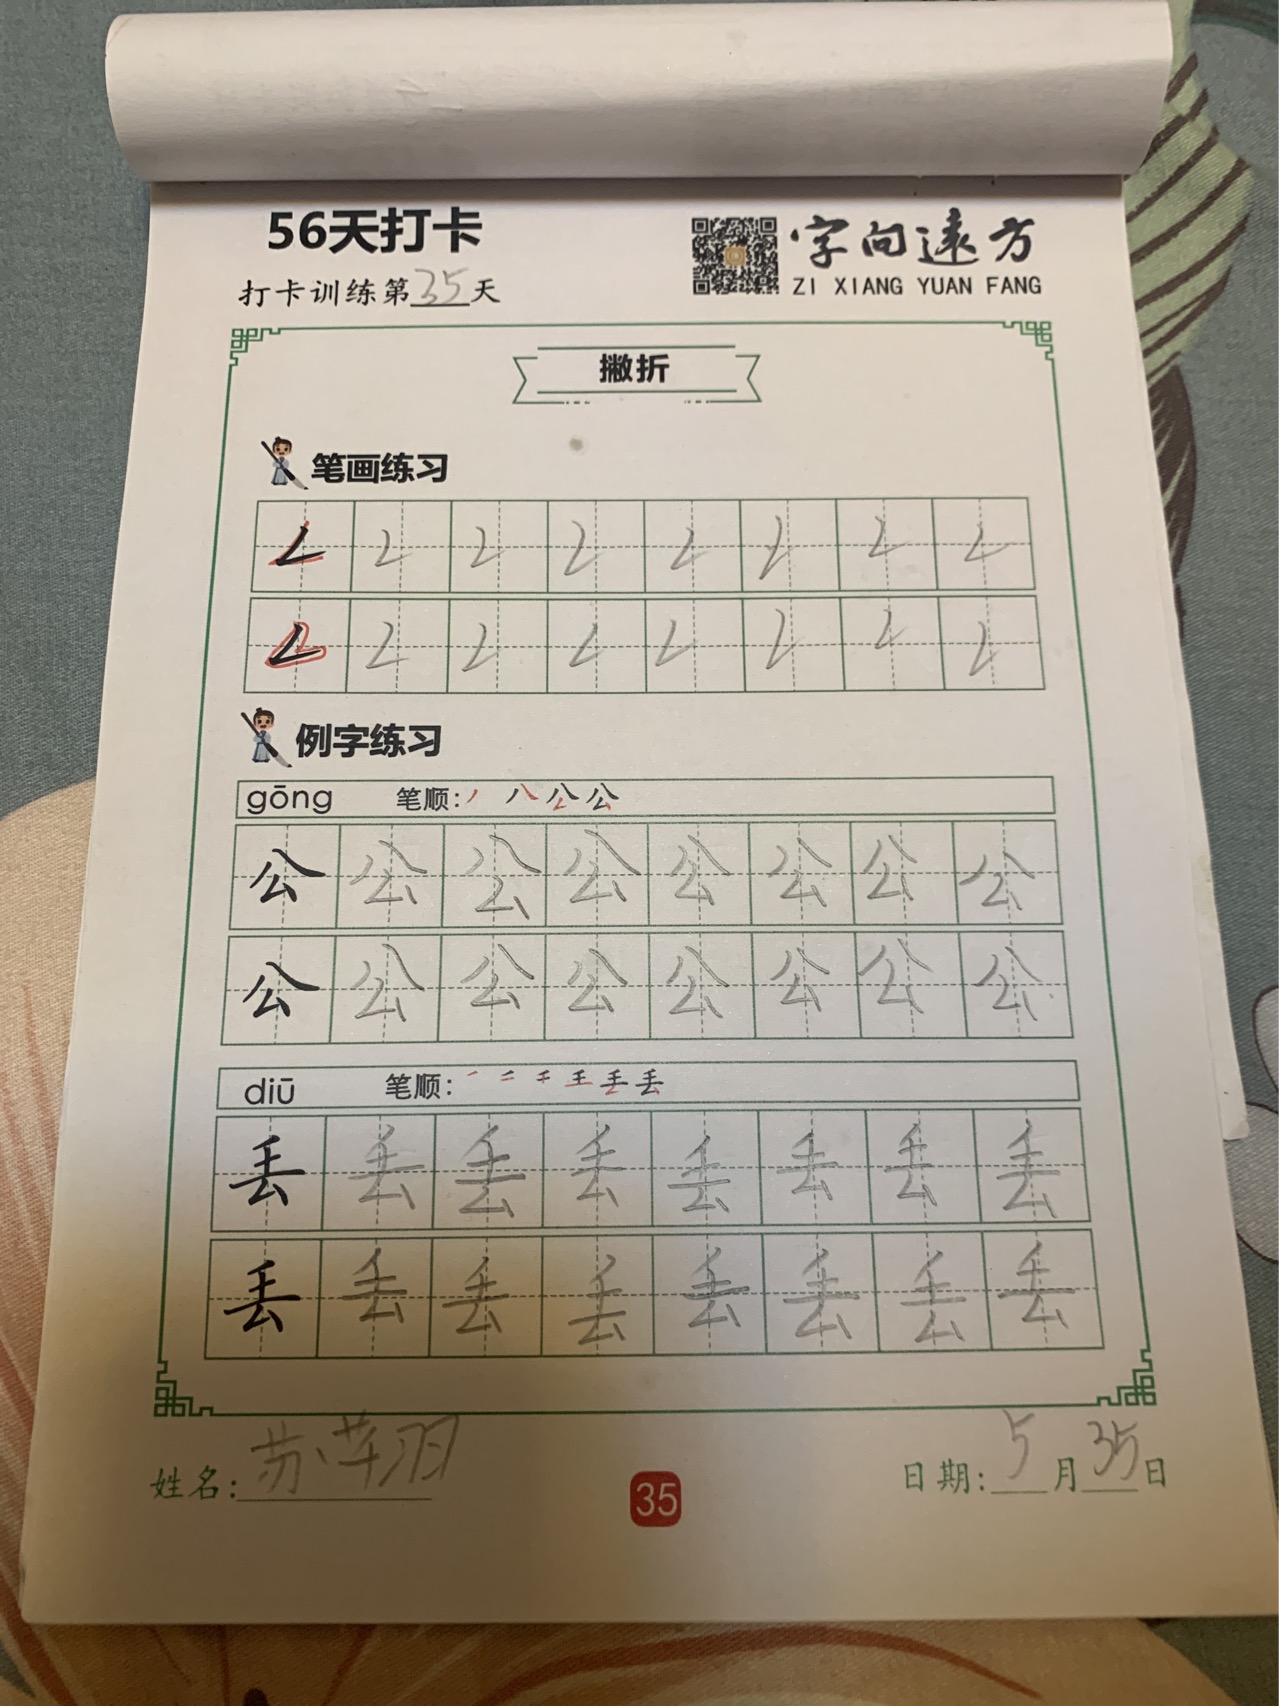 56天打卡
字向远方
打卡训练第35天
ZI XIANG YUAN FANG
撇折
笔画练习
𠃋 𠃋 𠃋 𠃋 𠃋 𠃋 𠃋 𠃋
𠃋 𠃋 𠃋 𠃋 𠃋 𠃋 𠃋 𠃋
例字练习
gōng 笔顺: 公
公 公 公 公 公 公 公 公
公 公 公 公 公 公 公 公
diū 笔顺: 丢
丢 丢 丢 丢 丢 丢 丢 丢
丢 丢 丢 丢 丢 丢 丢 丢
姓名: 苏 羽
日期: 5月35日
35